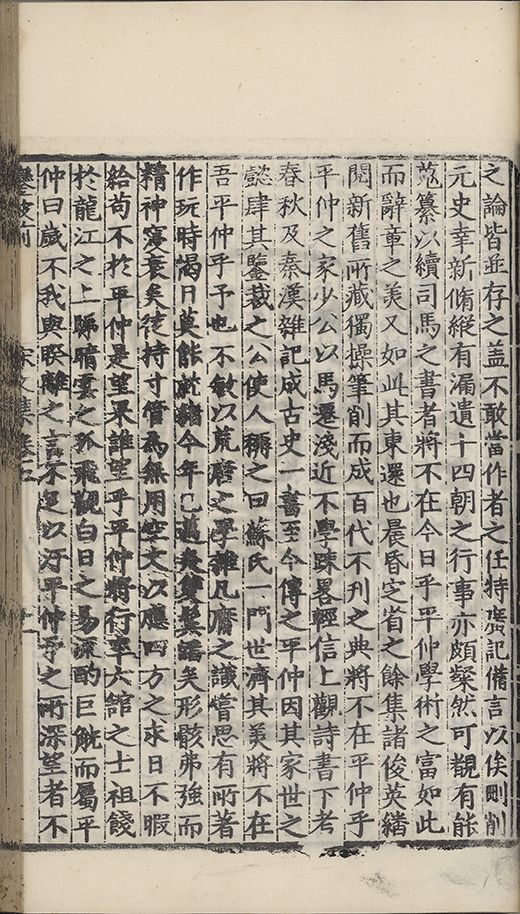 之論皆並存之盖不敢當作者之任特廣記備言以俟刪削
元史幸新脩縱有漏遺十四朝之行事亦頗粲然可觀有能
蒐纂以續司馬之書者將不在今日乎平仲學術之富如此
而辭章之美又如此其東還也晨昏定省之餘集諸俊英繙
閱新舊所藏獨操筆削而成百代不刊之典將不在平仲乎
平仲之家少公以馬遷淺近不學踈畧輕信上觀詩書下考
春秋及秦漢雜記成古史一書至今傳之平仲因其家世之
懿肆其鑒裁之公使人稱之曰蘇氏一門世濟其美將不在
吾平仲乎予也不敏以荒唐之學雜凡庸之識嘗思有所著
作玩時愒日莫能就緒今年已邁矣雙鬢皤矣形骸弗強而
精神寖衰矣徒持寸管為無用空文以應四方之求日不暇
給苟不於平仲是望果誰望乎平仲將行率六館之士祖餞
於龍江之上睇晴雲之孤飛觀白日之易流酌巨觥而屬平
仲曰歲不我與睽離之言不足以汙平仲予之所深望者不
宋文集卷